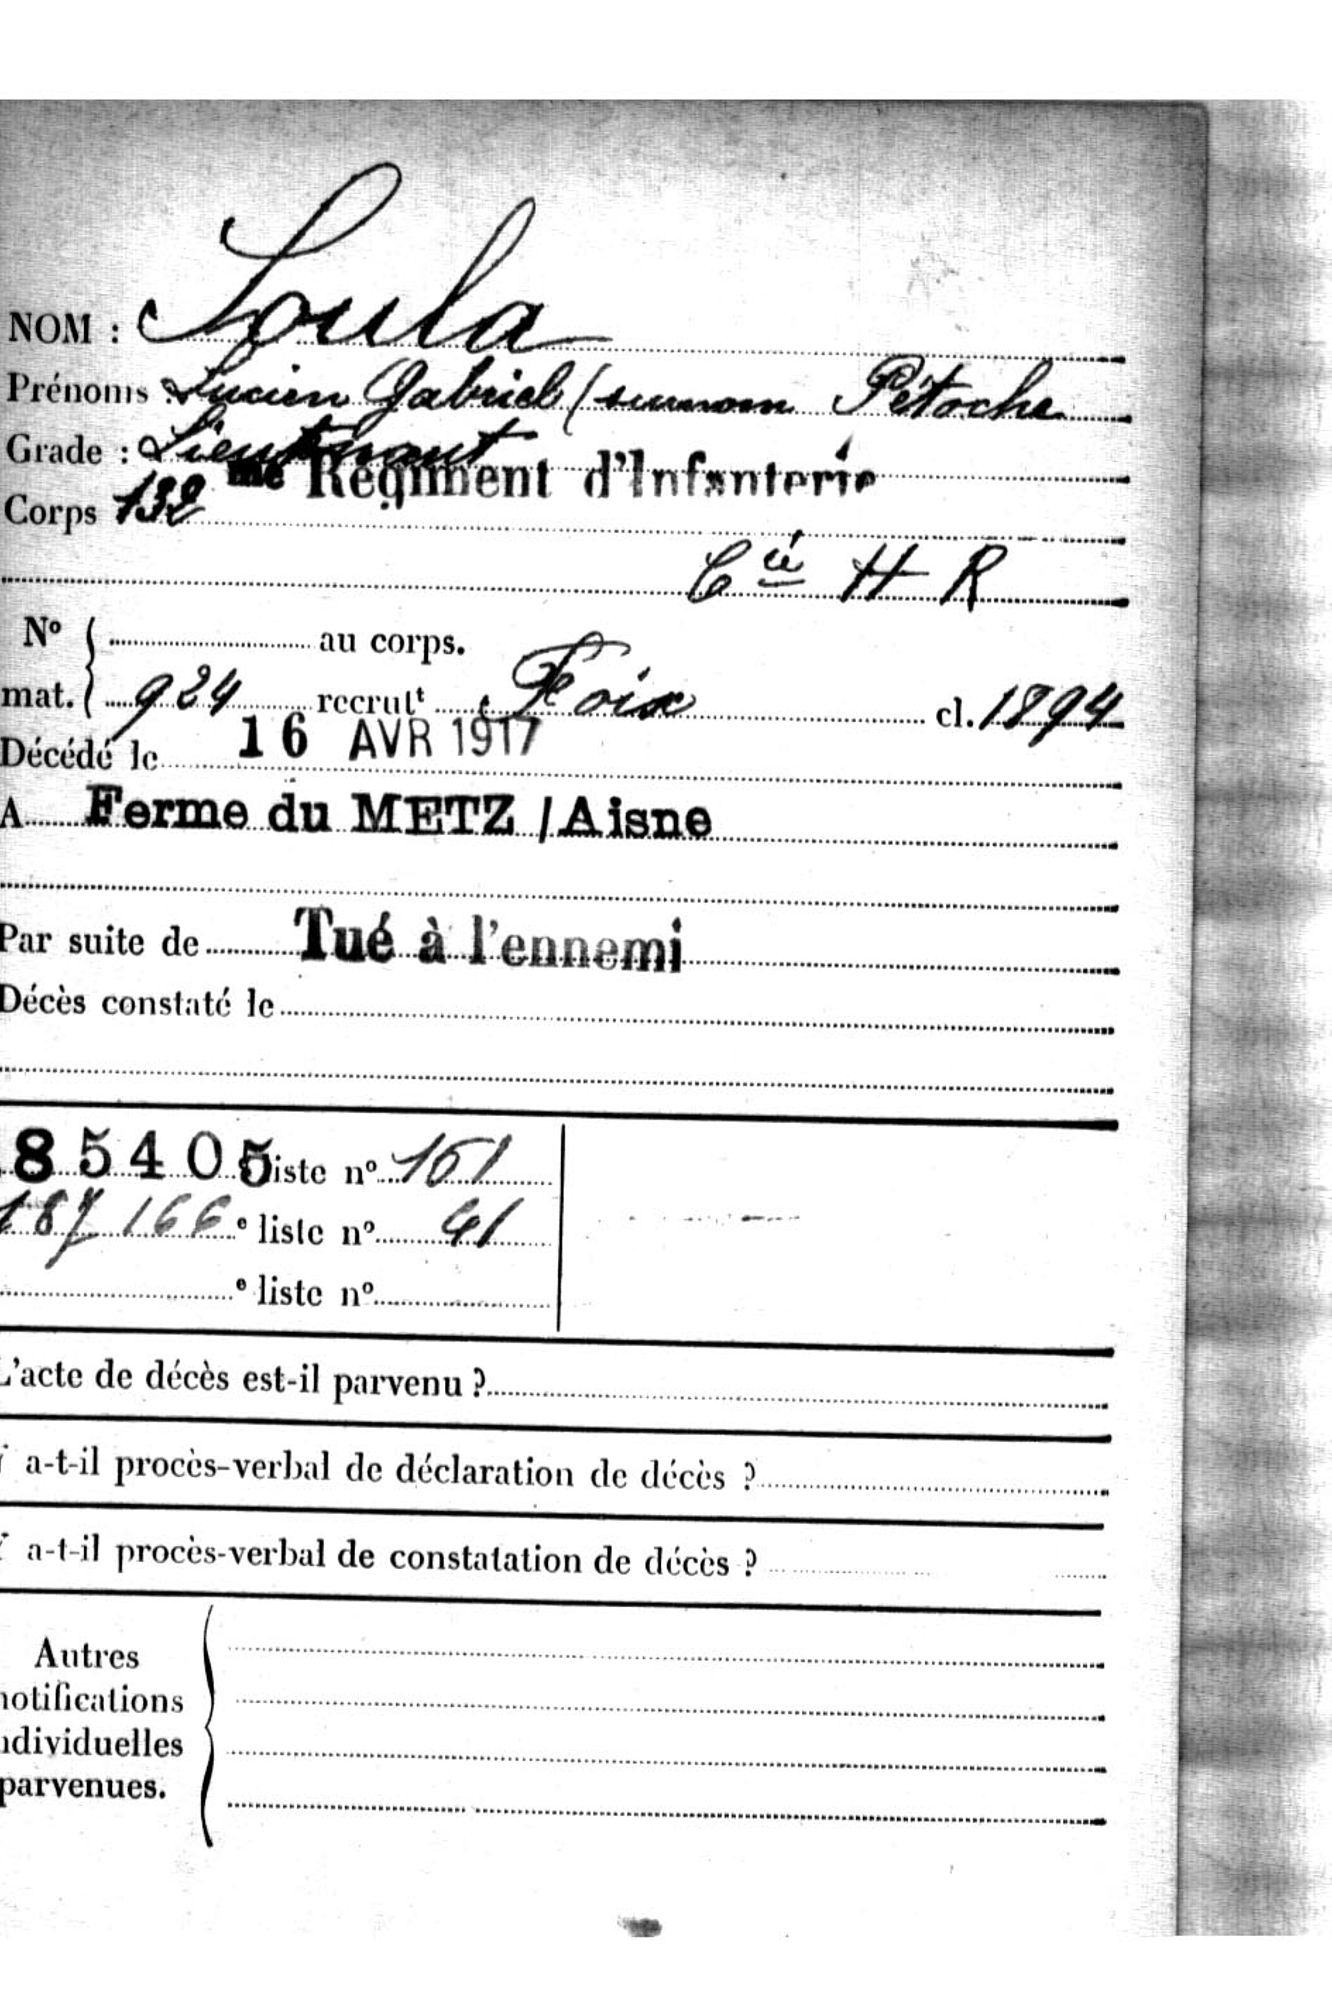 NOM : Soula
Prénoms : Lucien Gabriel (surnom Pétoche
Grade : Lieutenant
Corps 132 me Régiment d'Infanterie
Cie H R
No au corps.
mat. 924 recrutt Foix cl. 1894
Décédé le 16 AVR 1917
A Ferme du METZ /Aisne
Par suite de Tué à l'ennemi
Décès constaté le
85405 liste no 151
187166 e liste no 41
e liste no
L'acte de décès est-il parvenu ?
a-t-il procès-verbal de déclaration de décès ?
a-t-il procès-verbal de constatation de décès ?
Autres
notifications
individuelles
parvenues.